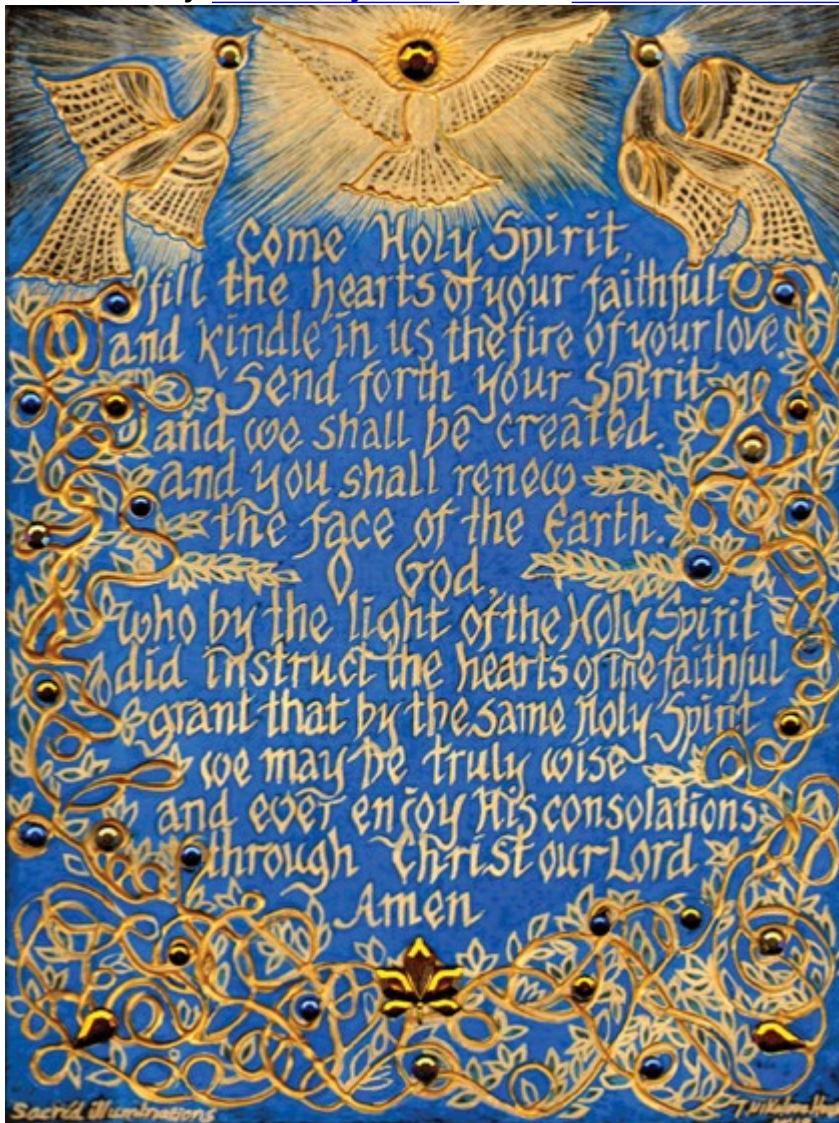 Come Holy Spirit,
fill the hearts of your faithful
and kindle in us the fire of your love.
Send forth your Spirit
and we shall be created.
and you shall renew
the face of the Earth.
O God,
who by the light of the Holy Spirit
did instruct the hearts of the faithful
grant that by the same Holy Spirit
we may be truly wise
and ever enjoy His consolations
through Christ our Lord
Amen
Sacred Illuminations